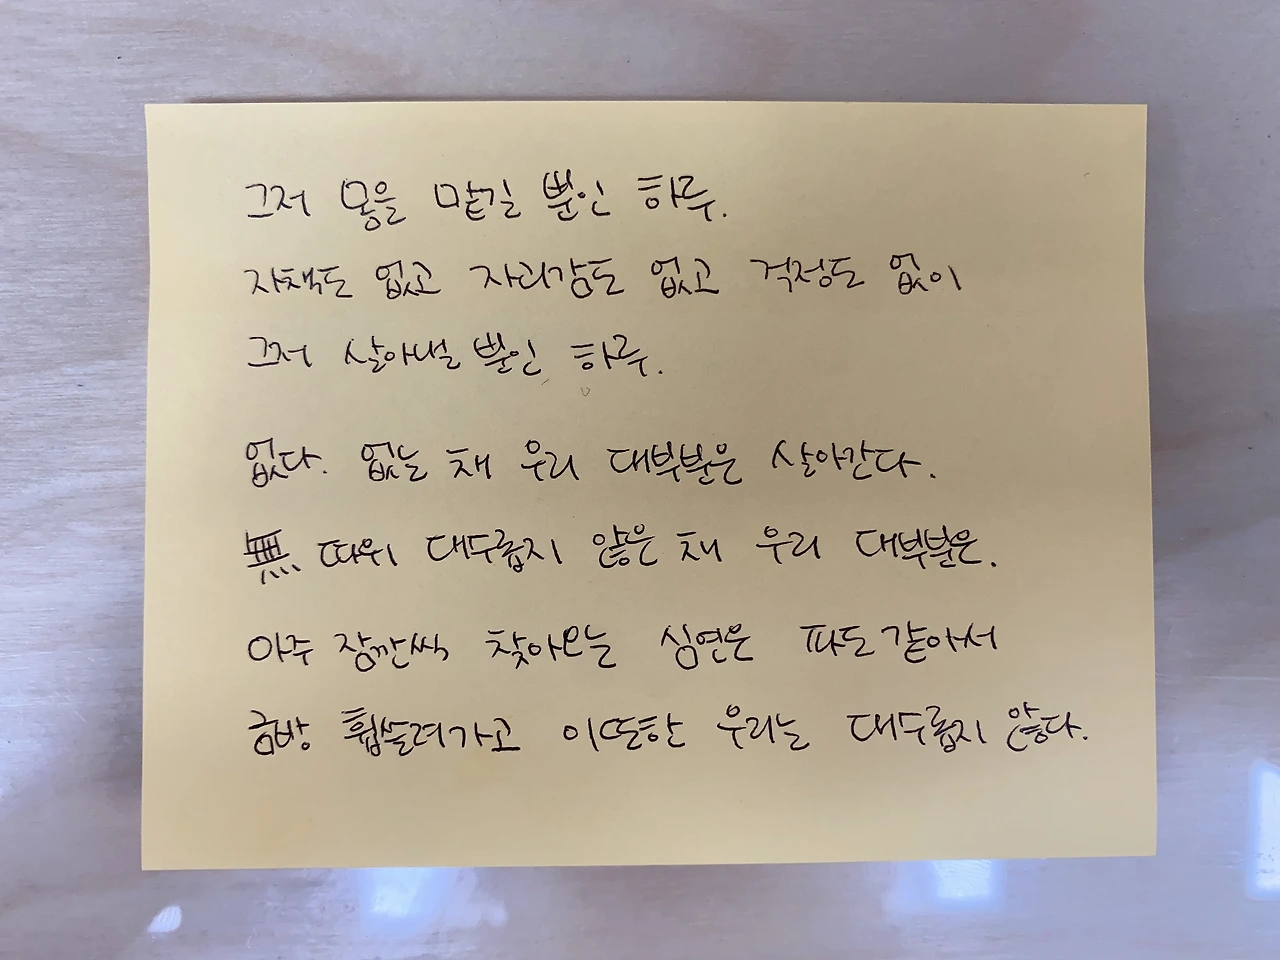 그저 몸을 맡길 뿐인 하루.
자책도 없고 자괴감도 없고 걱정도 없이
그저 살아낼 뿐인 하루.
없다. 없는 채 우리 대부분은 살아간다.
無 따위 대수롭지 않은 채 우리 대부분은.
아주 잠깐씩 찾아오는 심연은 파도 같아서
금방 휩쓸려가고 이또한 우리는 대수롭지 않다.